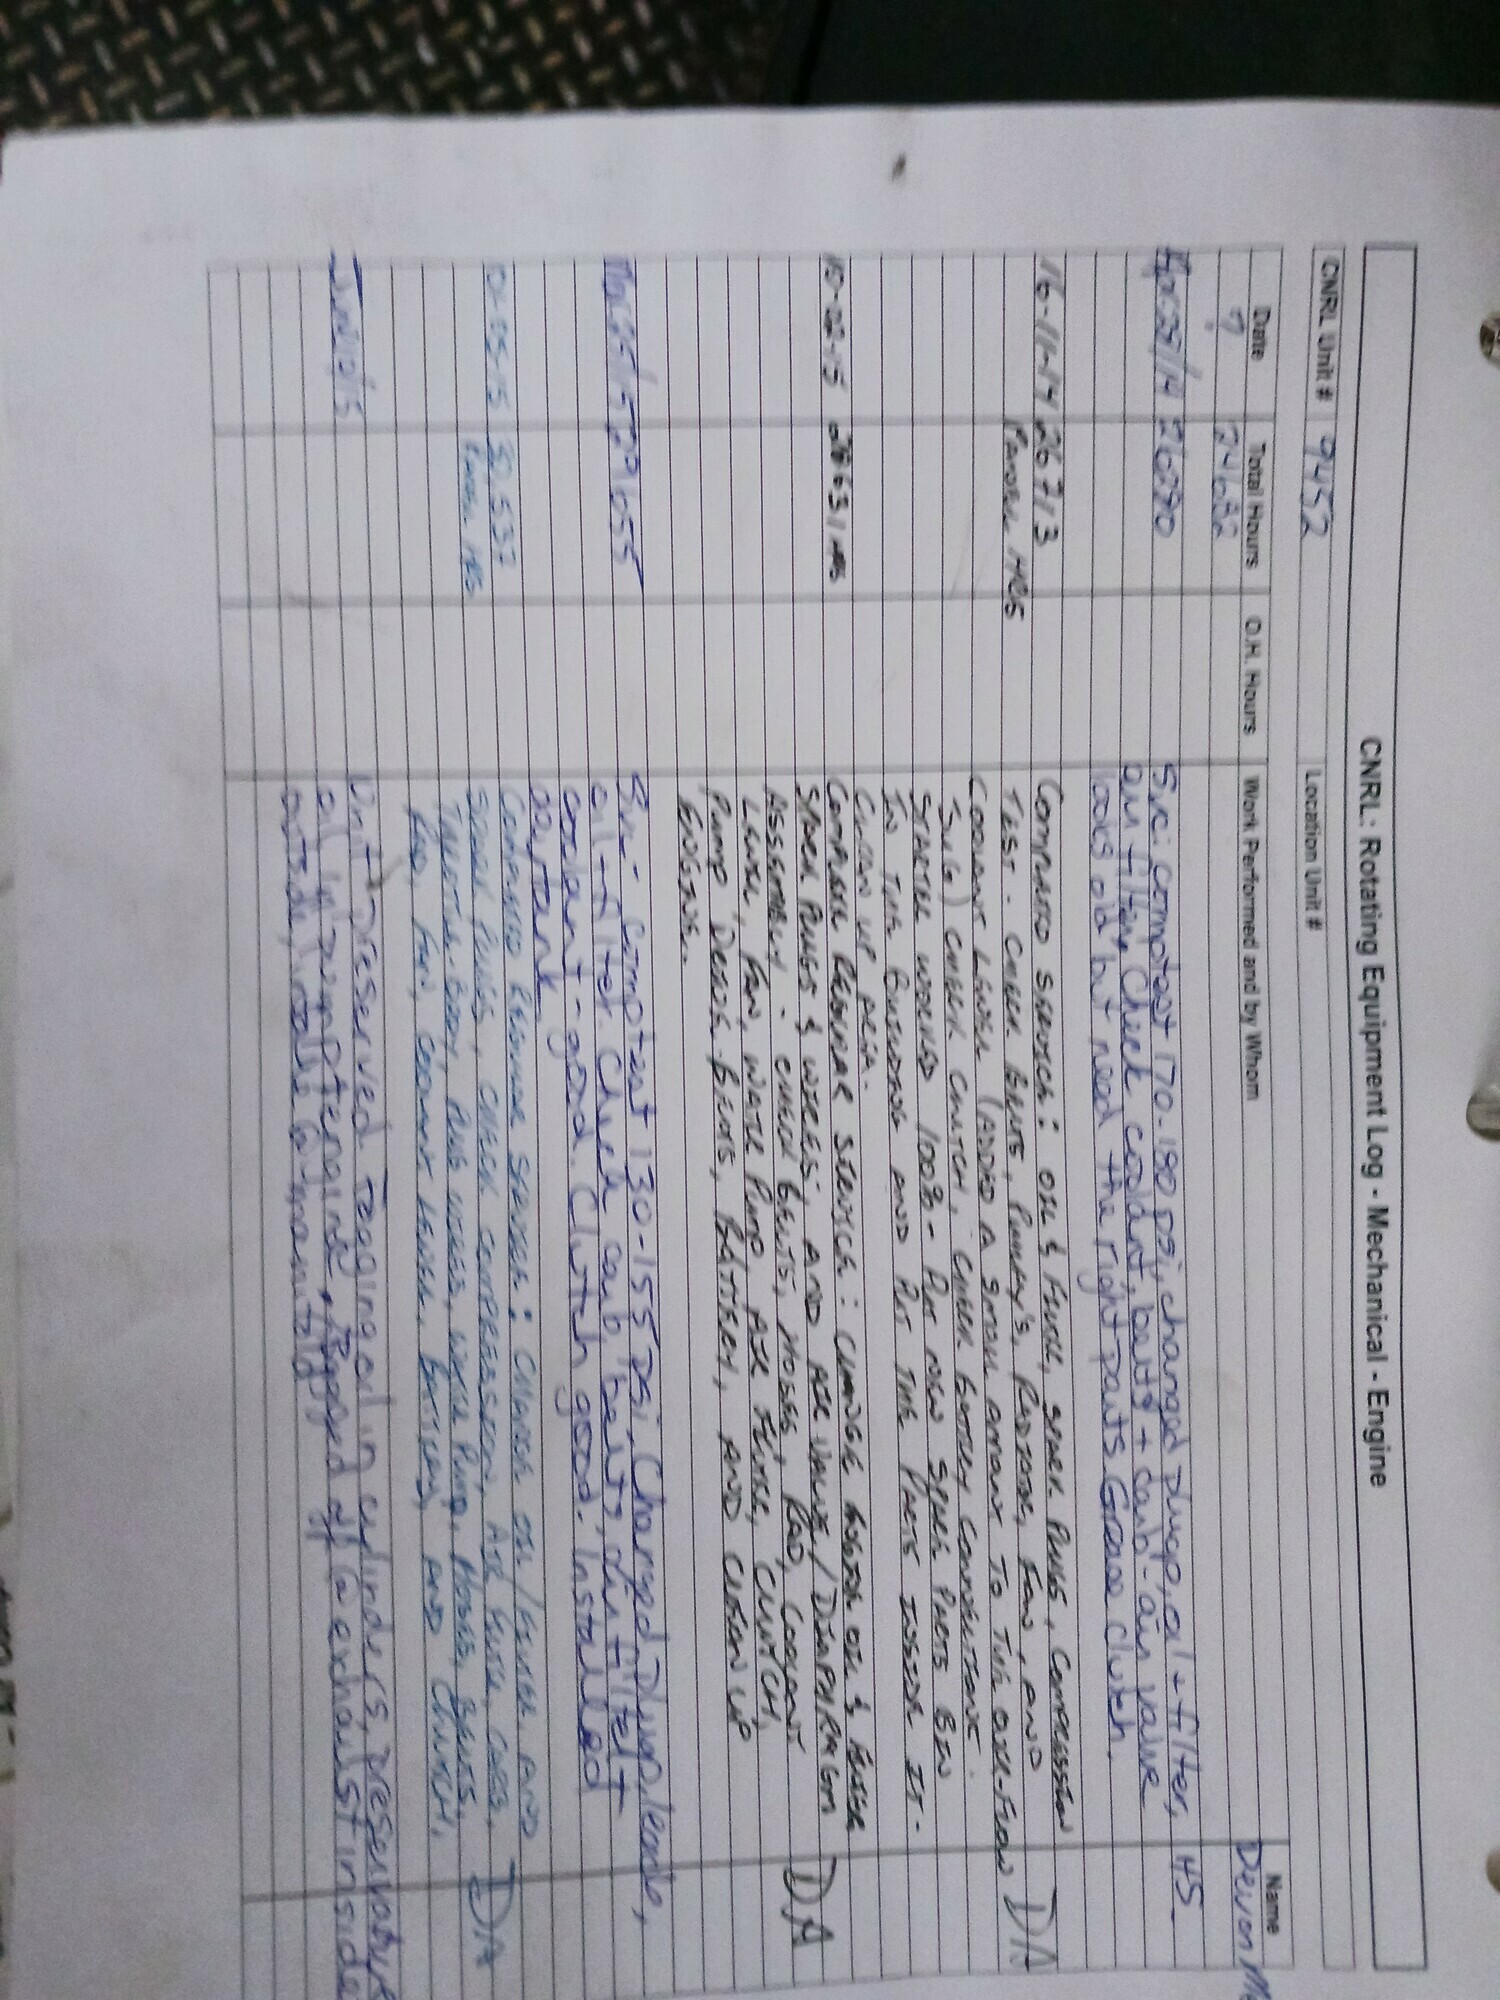 CNRL: Rotating Equipment Log - Mechanical - Engine
CNRL Unit # 9452 Location Unit #
Date Total Hours O.H. Hours Work Performed and by Whom Name
? 24682 Devon
Apr 29/14 26290 Svc: comptest 170-180 psi, changed plugs, oil + filter, HS
air filter. Check coolant, belts + carb - air valve
looks old but need the right parts. Grease clutch.
16-11-14 26713 COMPLETED SERVICE: OIL & FILTER, SPARK PLUGS, COMPRESSION
PANEL HRS TEST - CHECK BELTS, PULLEY'S, RADIATOR, FAN, AND
COOLANT LEVEL (ADDED A SMALL AMOUNT TO THE OVER-FLOW DA
JUG) CHECK CLUTCH, CHECK BATTERY CONNECTIONS.
STARTER WORKED 100% - PUT NEW SPARK PARTS BIN
IN THE BUILDING AND PUT THE PARTS INSIDE IT -
CLEAN UP AREA.
10-02-15 28631 HRS COMPLETE REGULAR SERVICE: CHANGE ENGINE OIL & FILTER
SPARK PLUGS & WIRES, AND AIR VALVE/DIAPHRAGM
ASSEMBLY - CHECK BELTS, HOSES, RAD, COOLANT DA
LEVEL, FAN, WATER PUMP, AIR FILTER, CLUTCH,
PUMP DRIVE BELTS, BATTERY, AND CLEAN UP
ENGINE.
29655 Svc - Comptest 130-155 psi, Changed plugs, leads,
oil + filter. Check carb, belts, air filter
coolant - good. Clutch good. Installed
day tank
-05-15 30,537 COMPLETED REGULAR SERVICE: CHANGE OIL/FILTER, AND
PANEL HRS. SPARK PLUGS, CHECK COMPRESSION, AIR FILTER, CARB, DA
THROTTLE BODY, PLUG WIRES, WATER PUMP, HOSES, BELTS,
RAD, FAN, COOLANT LEVEL, BATTERY, AND CLUTCH.
Unit preserved. Fogging oil in cylinders, preservative
oil in pump + engine, Tapped off @ exhaust inside
outside, intake @ manifold